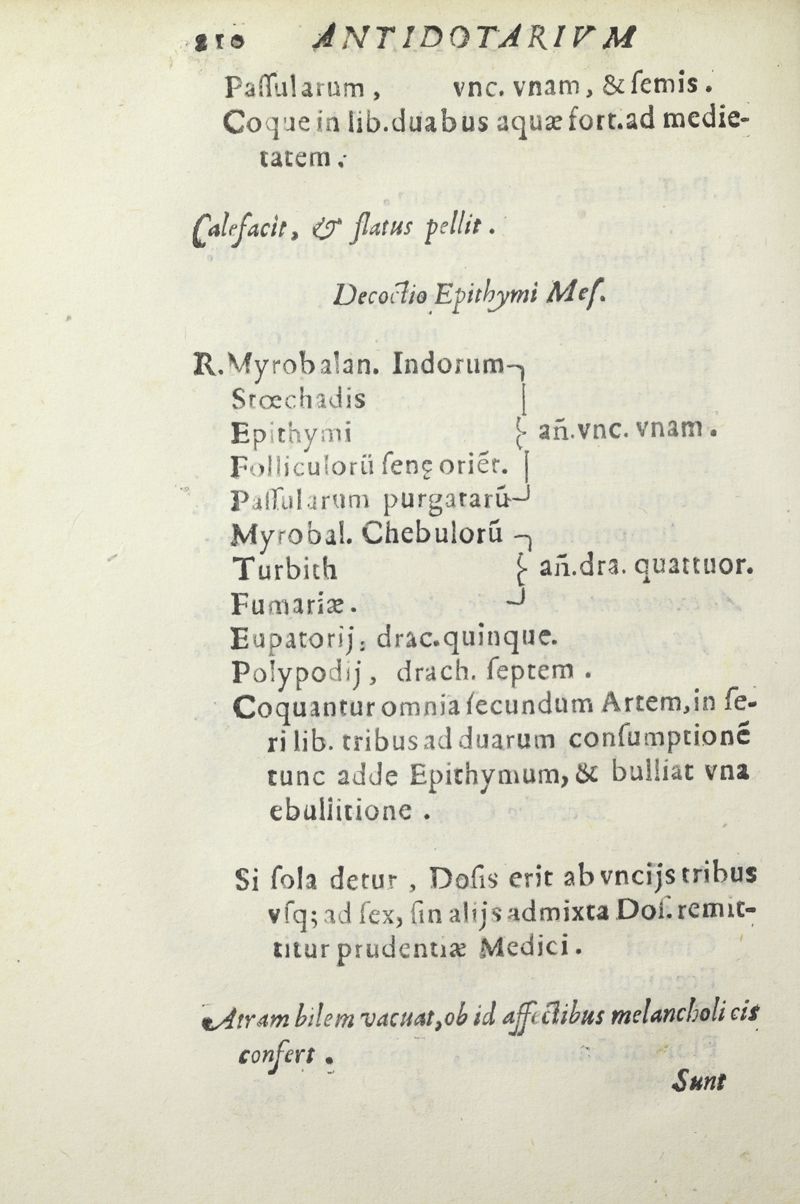 210 ANTIDOTARIVM
Paſſularum, vnc. vnam, & ſemis.
Coque in lib. duabus aquæ fort. ad medie-
tatem.
Calefacit, & flatus pellit.
Decoctio Epithymi Meſ.
R. Myrobalan. Indorum
Stœchadis
Epithymi } añ. vnc. vnam.
Folliculorū ſenę oriēt.
Paſſularum purgatarū
Myrobal. Chebulorū
Turbith } añ. dra. quattuor.
Fumariæ.
Eupatorij, drac. quinque.
Polypodij, drach. ſeptem.
Coquantur omnia ſecundum Artem, in ſe-
ri lib. tribus ad duarum conſumptionē
tunc adde Epithymum, & bulliat vna
ebullitione.
Si ſola detur, Doſis erit ab vncijs tribus
vſq; ad ſex, ſin alijs admixta Doſ. remit-
titur prudentiæ Medici.
Atram bilem vacuat, ob id affectibus melancholicis
confert.
Sunt